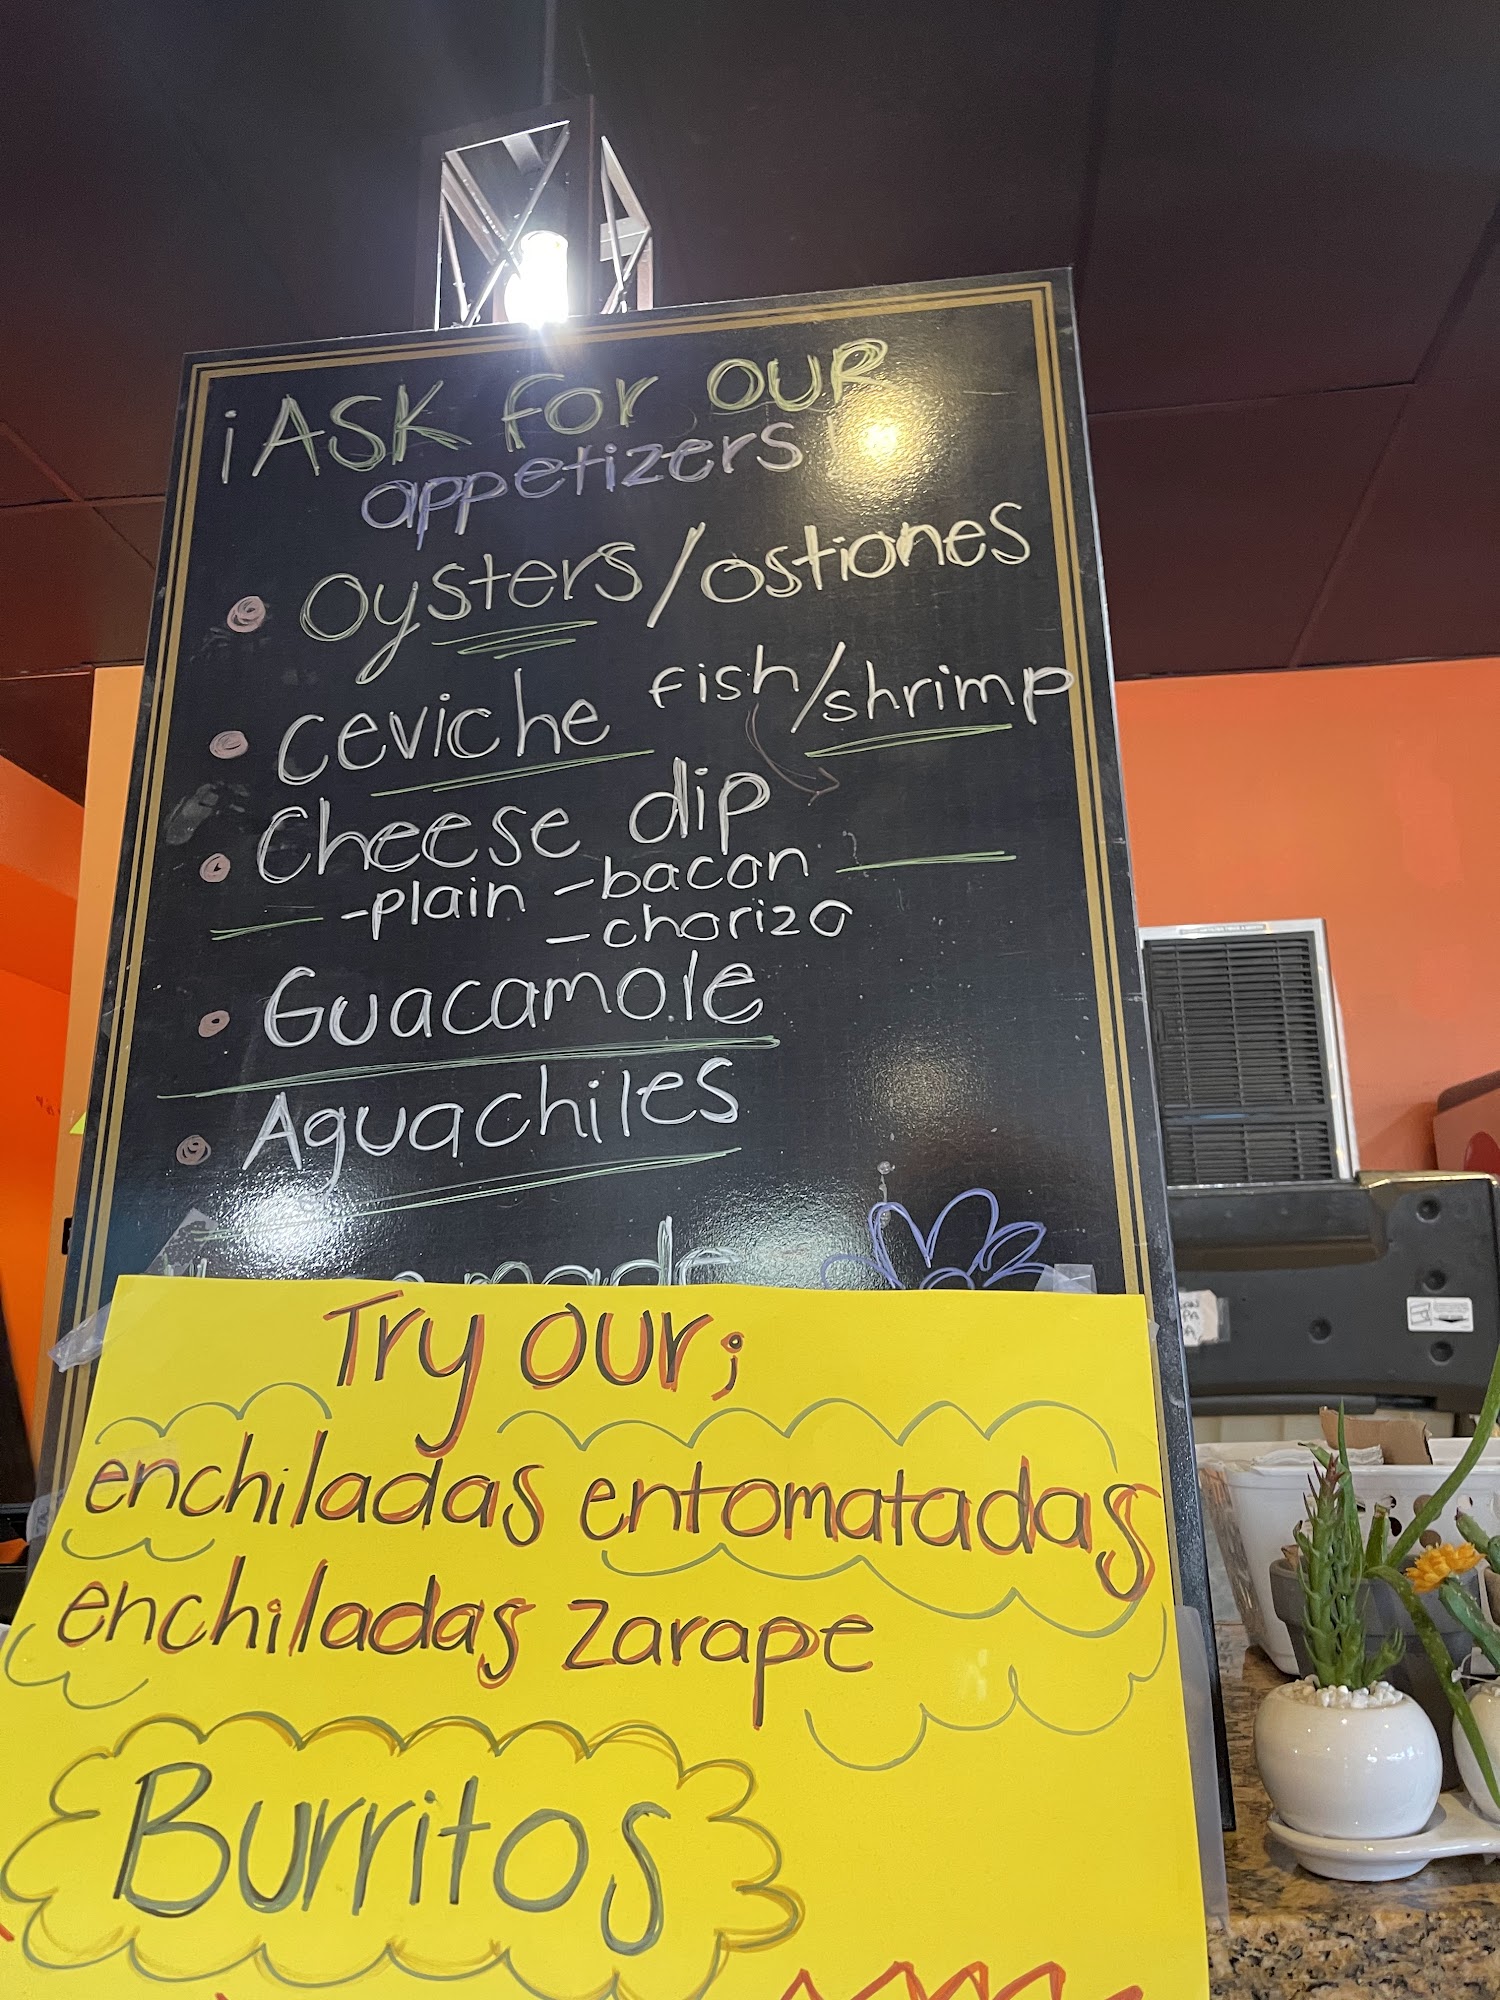 ¡ASK for OUR
appetizers!
• Oysters/ostiones
• Ceviche fish/shrimp
• Cheese dip
-plain -bacon
-chorizo
• Guacamole
• Aguachiles
made
Try our;
enchiladas entomatadas
enchiladas zarape
Burritos